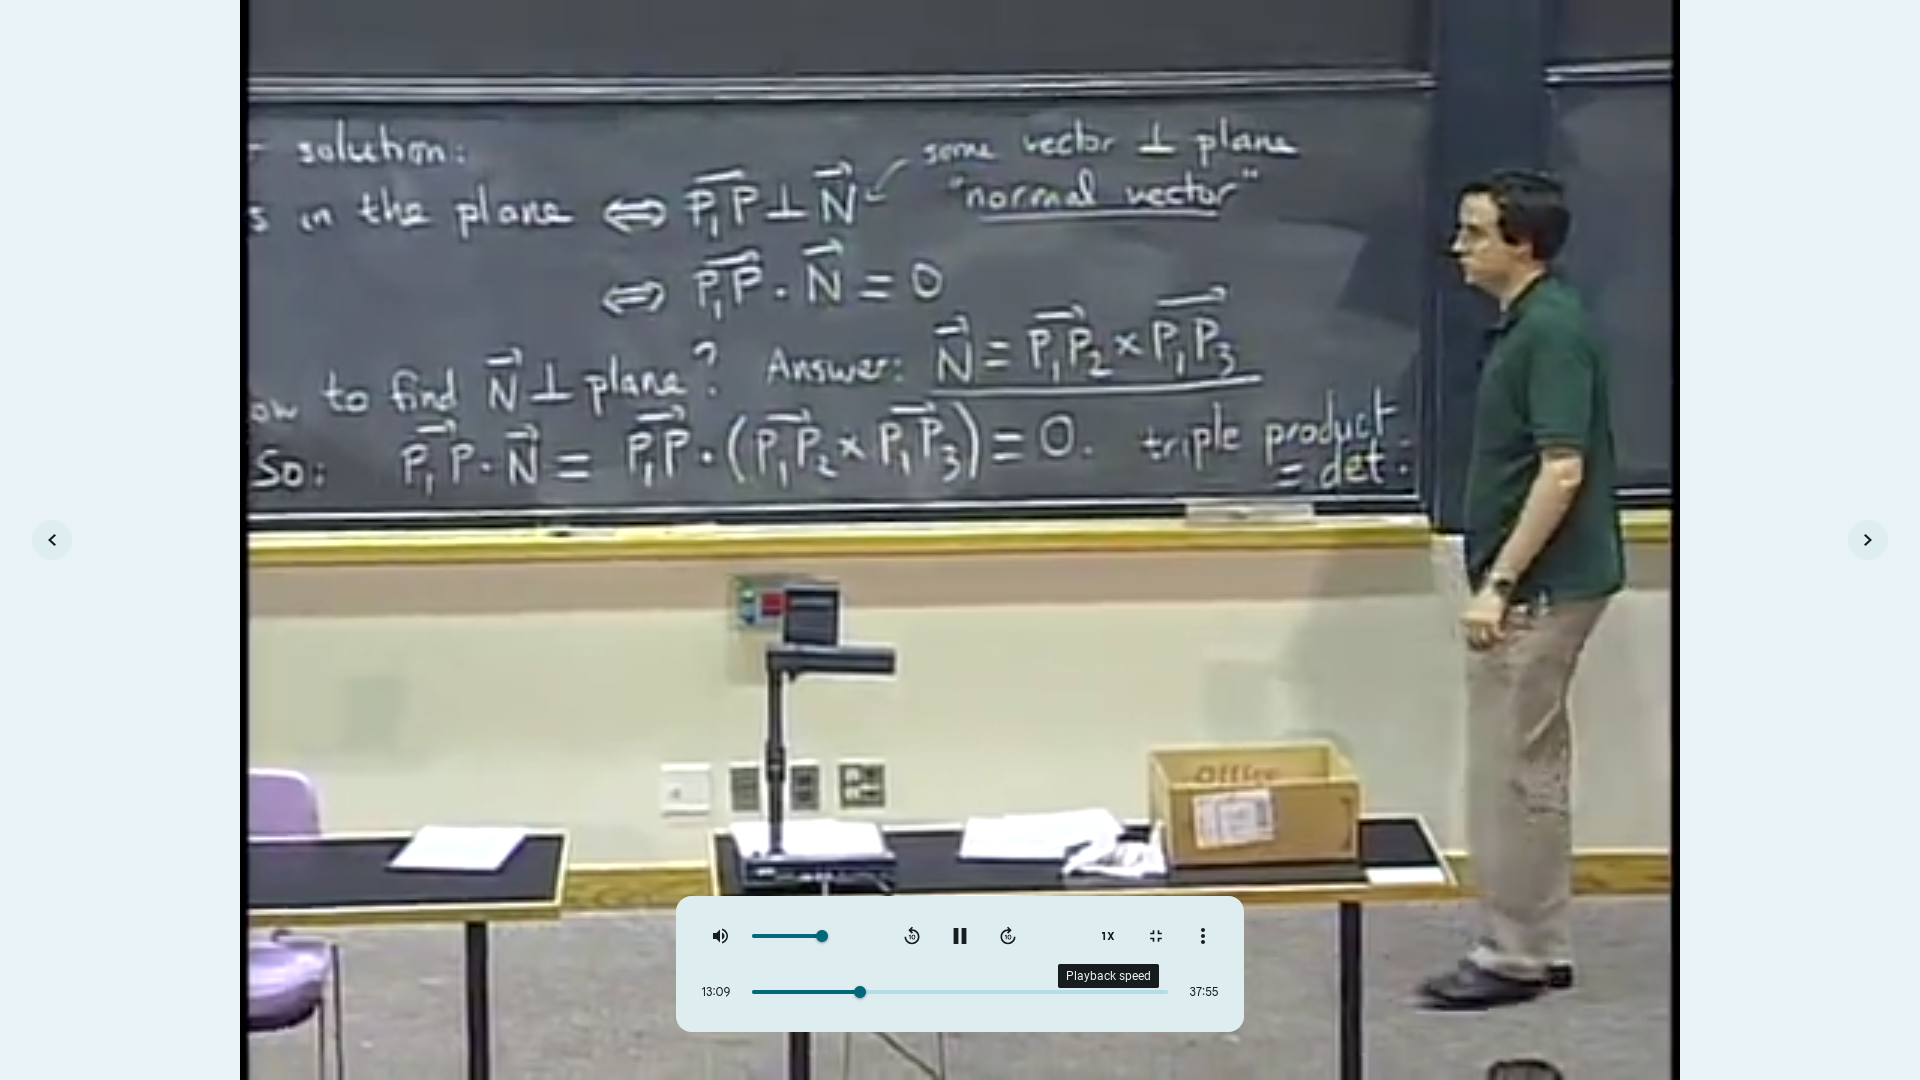 solution:
some vector ⊥ plane
in the plane ⇔ P₁P ⊥ N
"normal vector"
⇔ P₁P · N = 0
to find N ⊥ plane? Answer: N = P₁P₂ × P₁P₃
So: P₁P · N = P₁P · (P₁P₂ × P₁P₃) = 0. triple product
= det.
Office
1X
Playback speed
13:09
37:55